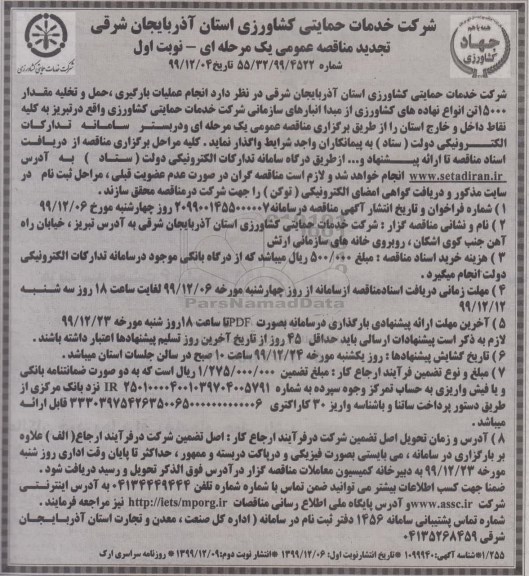 شرکت خدمات حمایتی کشاورزی استان آذربایجان شرقی
همه با هم
جهاد
کشاورزی
تجدید مناقصه عمومی یک مرحله ای – نوبت اول
شرکت خدمات حمایتی کشاورزی
شماره ۵۵/۳۲/۹۹/۴۵۲۲ تاریخ ۹۹/۱۲/۰۴
شرکت خدمات حمایتی کشاورزی استان آذربایجان شرقی در نظر دارد انجام عملیات بارگیری ،حمل و تخلیه مقدار
۱۵۰۰۰تن انواع نهاده های کشاورزی از مبدا انبارهای سازمانی شرکت خدمات حمایتی کشاورزی واقع درتبریز به کلیه
نقاط داخل و خارج استان را از طریق برگزاری مناقصه عمومی یک مرحله ای ودربستر سامانه تدارکات
الکترونیکی دولت ( ستاد ) به پیمانکاران واجد شرایط واگذار نماید . کلیه مراحل برگزاری مناقصه از دریافت
اسناد مناقصه تا ارائه پیشنهاد و...ازطریق درگاه سامانه تدارکات الکترونیکی دولت ( ستاد ) به آدرس
www.setadiran.ir انجام خواهد شد و لازم است مناقصه گران در صورت عدم عضویت قبلی ، مراحل ثبت نام در
سایت مذکور و دریافت گواهی امضای الکترونیکی ( توکن ) را جهت شرکت درمناقصه محقق سازند .
۱ ) شماره فراخوان و تاریخ انتشار آگهی مناقصه درسامانه۲۰۹۹۰۰۱۴۵۵۰۰۰۰۰۷ روز چهارشنبه مورخ ۹۹/۱۲/۰۶
۲ ) نام و نشانی مناقصه گزار : شرکت خدمات حمایتی کشاورزی استان آذربایجان شرقی به آدرس تبریز ، خیابان راه
آهن جنب کوی اشکان ، روبروی خانه های سازمانی ارتش
۳ ) هزینه خرید اسناد مناقصه : مبلغ ۵۰۰/۰۰۰ ریال میباشد که از درگاه بانکی موجود درسامانه تدارکات الکترونیکی
دولت انجام میگیرد .
۴ ) مهلت زمانی دریافت اسنادمناقصه ازسامانه از روز چهارشنبه مورخه ۹۹/۱۲/۰۶ لغایت ساعت ۱۸ روز سه شنبه
۹۹/۱۲/۱۲
ParsNamadData
۵ ) آخرین مهلت ارائه پیشنهادی بارگذاری درسامانه بصورت PDFتا ساعت ۱۸روز شنبه مورخه ۹۹/۱۲/۲۳
لازم به ذکر است پیشنهادات ارسالی باید حداقل ۴۵ روز از تاریخ آخرین روز تسلیم پیشنهادها اعتبار داشته باشند .
۶ ) تاریخ گشایش پیشنهادها : روز یکشنبه مورخه ۹۹/۱۲/۲۴ ساعت ۱۰ صبح در سالن جلسات استان میباشد .
۷ ) مبلغ و نوع تضمین فرآیند ارجاع کار : مبلغ تضمین ۱/۲۷۵/۰۰۰/۰۰۰ ریال است که به دو صورت ضمانتنامه بانکی
و یا فیش واریزی به حساب تمرکز وجوه سپرده به شماره IR ۲۵۰۱۰۰۰۰۴۰۰۱۰۳۹۷۰۴۰۰۵۷۹۱ نزد بانک مرکزی از
طریق دستور پرداخت ساتنا و باشناسه واریز ۳۰ کاراکتری ۳۳۳۰۳۹۷۵۴۲۶۳۵۰۰۶۵۰۰۰۰۰۰۰۰۰۰۰۰۶ قابل ارائه
میباشد .
۸ ) آدرس و زمان تحویل اصل تضمین شرکت درفرآیند ارجاع کار : اصل تضمین شرکت درفرآیند ارجاع( الف ) علاوه
بر بارگزاری در سامانه ، می بایستی بصورت فیزیکی و درپاکت دربسته و ممهور ، حداکثر تا پایان وقت اداری روز شنبه
مورخه ۹۹/۱۲/۲۳ به دبیرخانه کمیسیون معاملات مناقصه گزار درآدرس فوق الذکر تحویل و رسید دریافت شود .
ضمنا جهت کسب اطلاعات بیشتر می توانید ضمن تماس با شماره شماره تلفن ۰۴۱۳۴۴۴۹۴۴۴ به آدرس اینترنتی
شرکت www.assc.ir وآدرس پایگاه ملی اطلاع رسانی مناقصات http://iets/mporg.ir نیز مراجعه فرمایند .
شماره تماس پشتیبانی سامانه ۱۴۵۶ دفتر ثبت نام در سامانه ( اداره کل صنعت ، معدن و تجارت استان آذربایجان
شرقی ۰۴۱۳۵۲۶۸۴۵۹
۱/۲۵۵ *شناسه آگهی: ۱۰۹۹۹۳۰ *تاریخ انتشارنوبت اول: ۱۳۹۹/۱۲/۰۶ *انتشار نوبت دوم: ۱۳۹۹/۱۲/۰۹ * روزنامه سراسری ارک